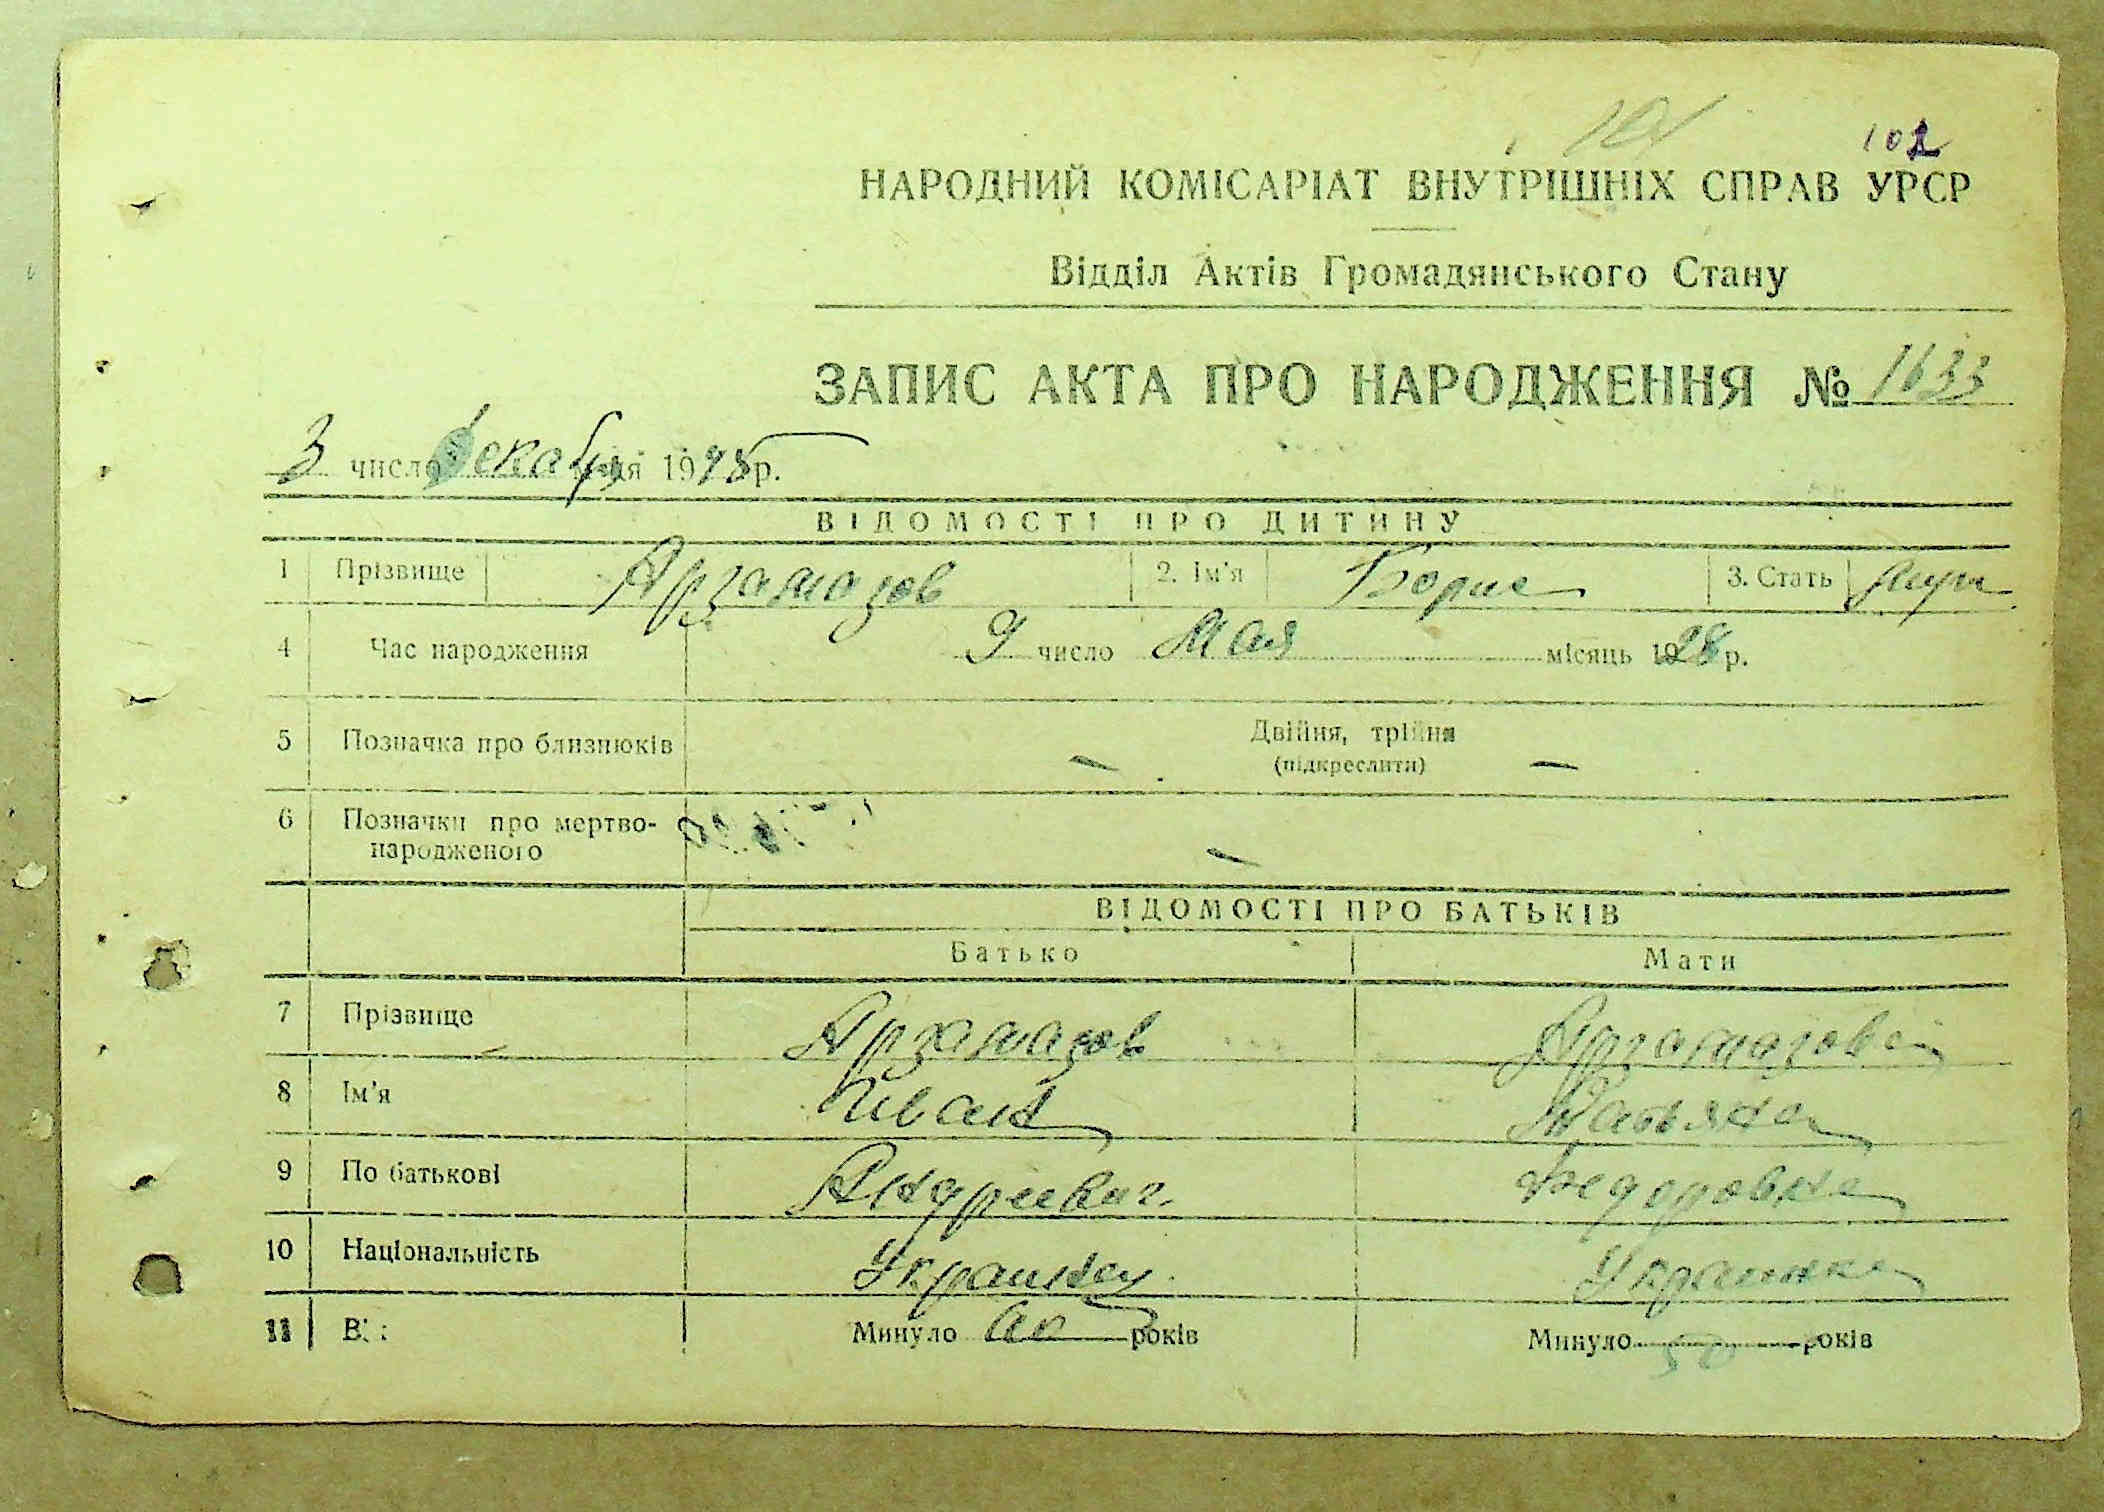 101
102
НАРОДНИЙ КОМІСАРІАТ ВНУТРІШНІХ СПРАВ УРСР
Відділ Актів Громадянського Стану
ЗАПИС АКТА ПРО НАРОДЖЕННЯ № 1633
3 число декабря місяця 1945 р.
ВІДОМОСТІ ПРО ДИТИНУ
1 Прізвище Арзамазов 2. Ім'я Борис 3. Стать муж
4 Час народження 9 число Мая місяць 1928 р.
5 Позначка про близнюків – Двійня, трійня –
(підкреслити)
6 Позначки про мертво-
народженого –
ВІДОМОСТІ ПРО БАТЬКІВ
Батько Мати
7 Прізвище Арзамазов Арзамазова
8 Ім'я Иван Татьяна
9 По батькові Андреевич Федоровна
10 Національність Украинец Украинка
11 Ві Минуло років Минуло 50 років